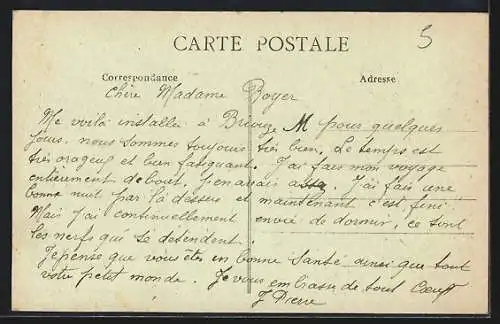 5
CARTE POSTALE
Correspondance
Adresse
Chère Madame Royer
Me voilà installée à Briouze M pour quelques
jours, nous sommes toujours très bien. Le temps est
très orageux et bien fatiguant. J'ai fais mon voyage
entièrement debout, j'en avais assez. J'ai fais une
bonne nuit par là dessus et maintenant c'est fini
Mais j'ai continuellement envie de dormir, ce sont
les nerfs qui se détendent.
Je pense que vous êtes en bonne santé ainsi que tout
votre petit monde. Je vous embrasse de tout Cœur
J Pierre